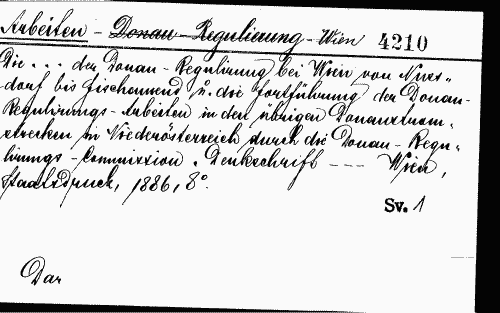 Arbeiten - Donau - Regulierung - Wien 4210
Die . . . der Donau - Regulirung bei Wien von Nuss„
dorf bis Fischamend u. die Fortführung der Donau-
Regulirungs - Arbeiten in den übrigen Donaustrom„
strecken in Niederösterreich durch die Donau - Regu„
lirungs - Commission. Denkschrift --- Wien,
Staatsdruck, 1886, 8°.
Sv. 1
Dar